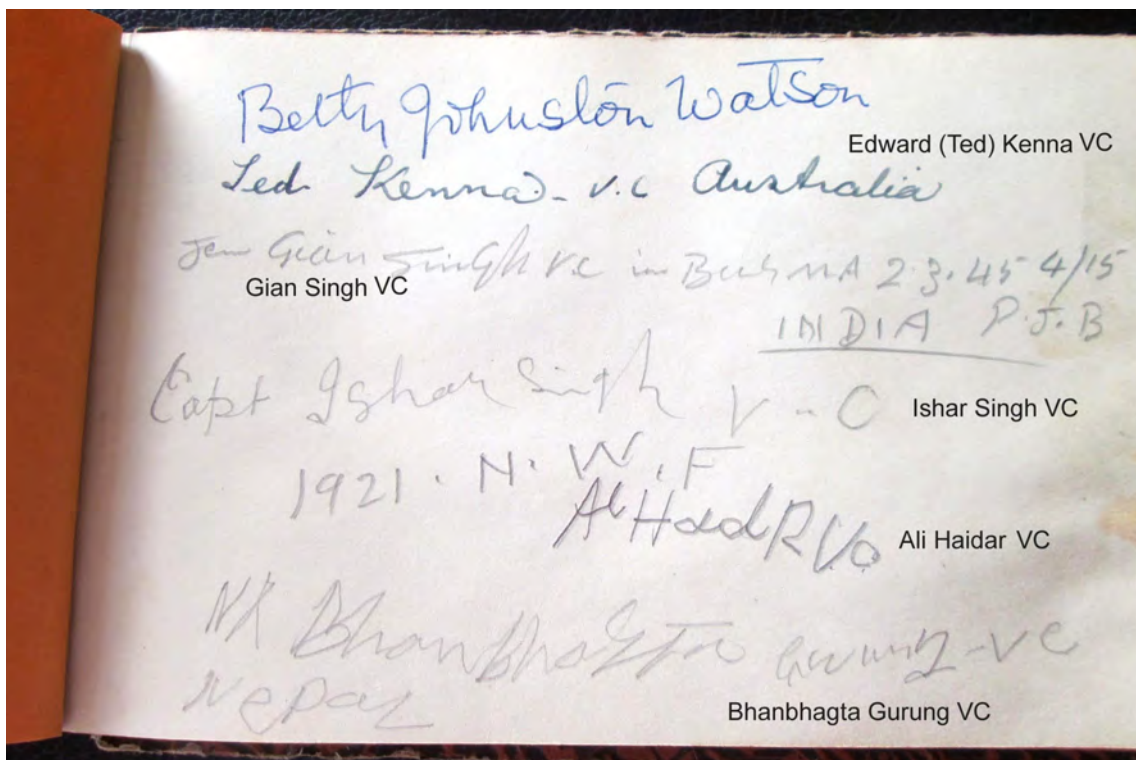 Betty Johnston Watson
Edward (Ted) Kenna VC
Ted Kenna - V.C Australia
Jem Gian Singh VC in BurMA 2.3.45 4/15
Gian Singh VC
INDIA P.J.B
Capt Ishar Singh V-C
Ishar Singh VC
1921. N.W.F
Ali HaidR VC
Ali Haidar VC
NK Bhanbhagta Gurung-VC
Nepal
Bhanbhagta Gurung VC